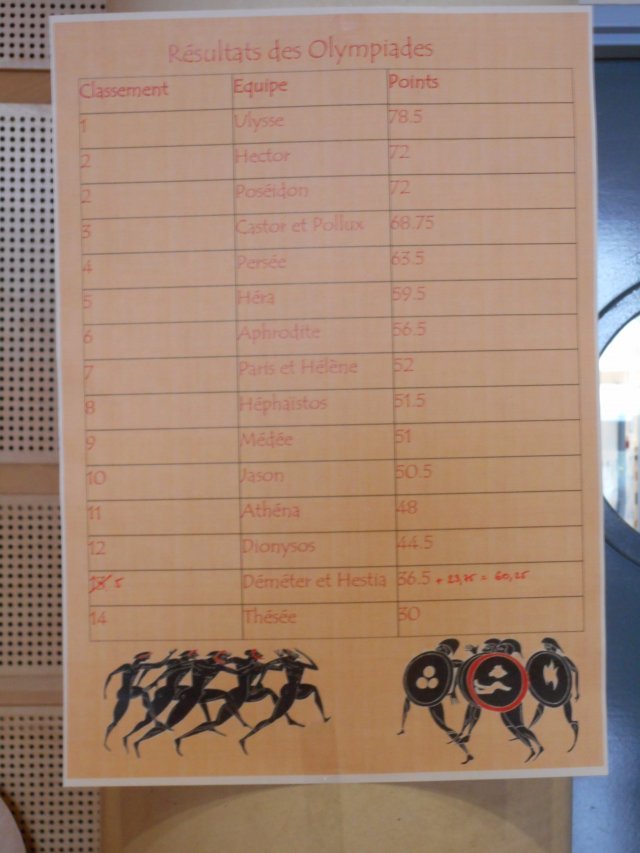 Résultats des Olympiades
Classement Equipe Points
1 Ulysse 78.5
2 Hector 72
2 Poséidon 72
3 Castor et Pollux 68.75
4 Persée 63.5
5 Héra 59.5
6 Aphrodite 56.5
7 Paris et Hélène 52
8 Héphaïstos 51.5
9 Médée 51
10 Jason 50.5
11 Athéna 48
12 Dionysos 44.5
13 5 Déméter et Hestia 36.5 + 23,75 = 60,25
14 Thésée 30